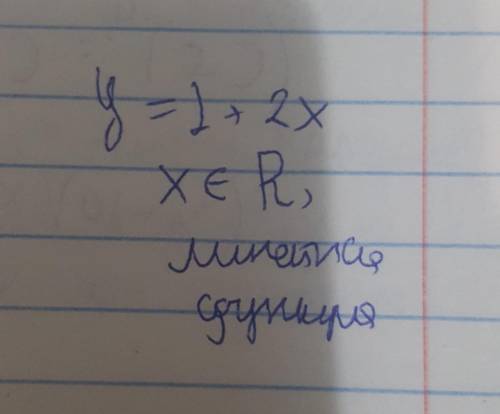 y = 1 + 2x
x ∈ R,
линейна
функция